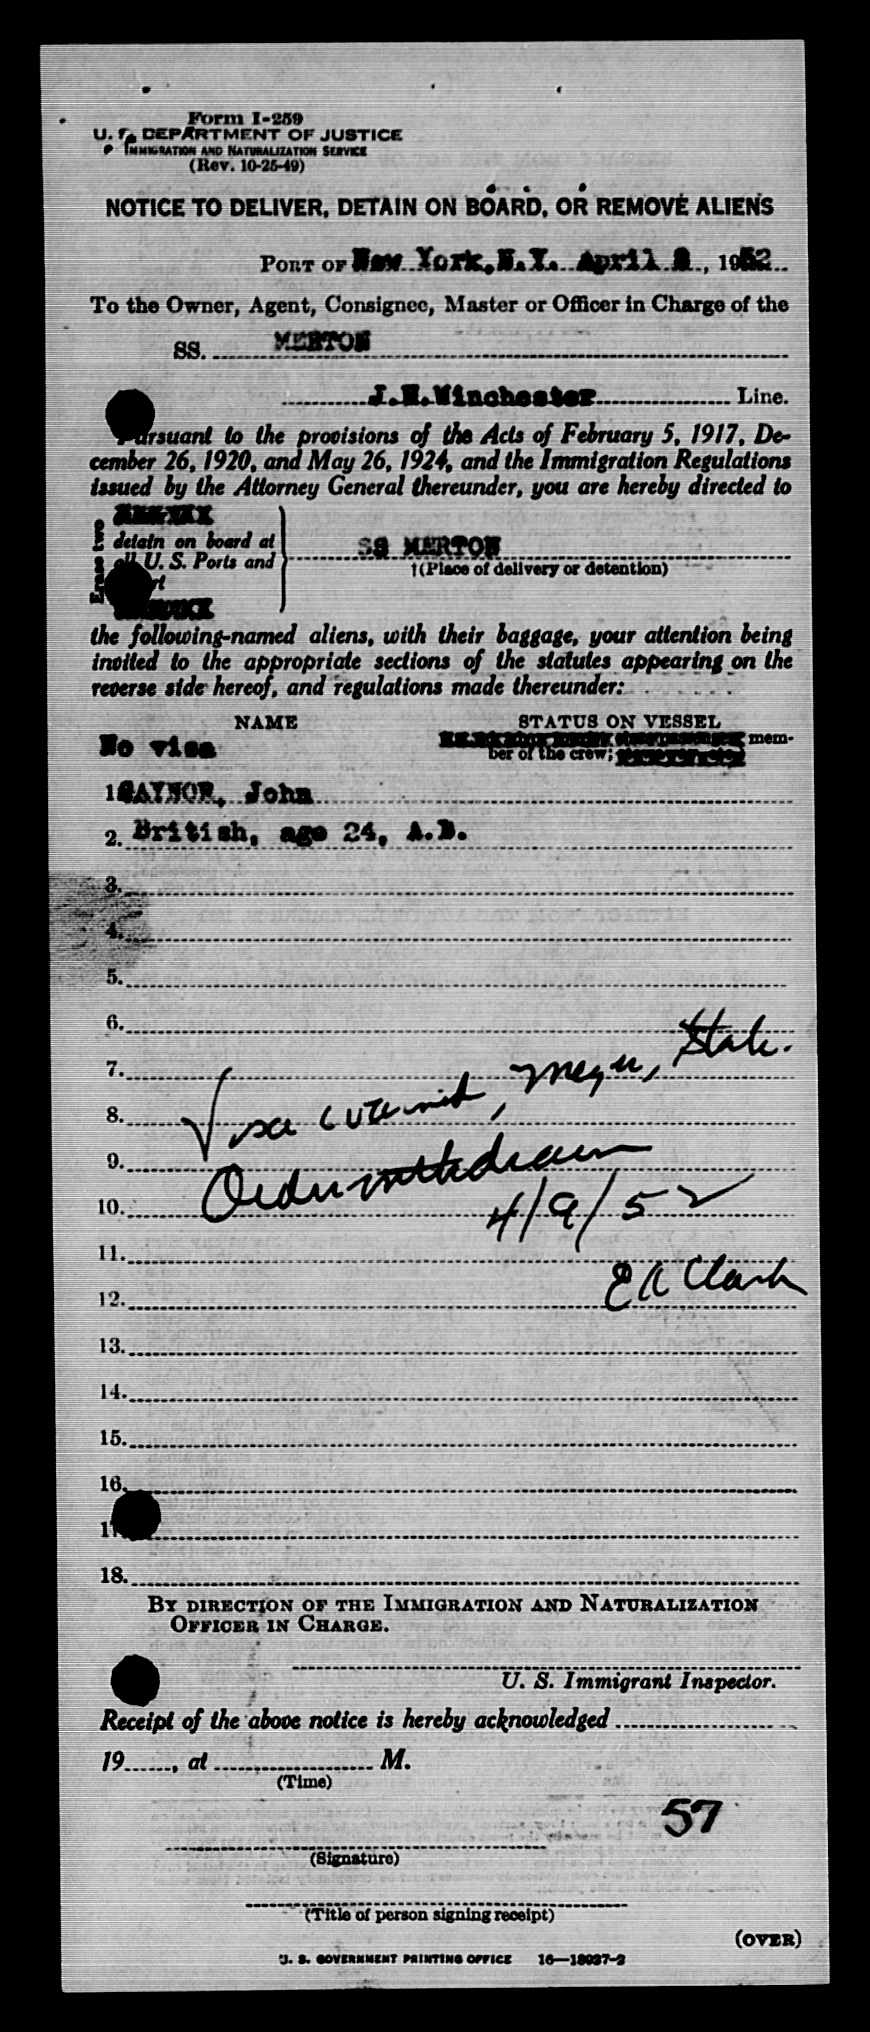 Form I-259
U. S. DEPARTMENT OF JUSTICE
IMMIGRATION AND NATURALIZATION SERVICE
(Rev. 10-25-49)
NOTICE TO DELIVER, DETAIN ON BOARD, OR REMOVE ALIENS
PORT OF New York, N.Y. April , 1952
To the Owner, Agent, Consignee, Master or Officer in Charge of the
SS. MERTON
J.H.Winchester Line.
Pursuant to the provisions of the Acts of February 5, 1917, De-
cember 26, 1920, and May 26, 1924, and the Immigration Regulations
issued by the Attorney General thereunder, you are hereby directed to
Erase two
detain on board at
all U. S. Ports and
SS MERTON
†(Place of delivery or detention)
the following-named aliens, with their baggage, your attention being
invited to the appropriate sections of the statutes appearing on the
reverse side hereof, and regulations made thereunder:
NAME STATUS ON VESSEL
No visa mem-
ber of the crew;
1 GAYNOR, John
2. British, age 24, A.B.
3.
4.
5.
6.
7.
8.
State.
Visa submit,
9.
Order withdrawn
10.
4/9/52
11.
E A Clark
12.
13.
14.
15.
16.
17
18.
BY DIRECTION OF THE IMMIGRATION AND NATURALIZATION
OFFICER IN CHARGE.
U. S. Immigrant Inspector.
Receipt of the above notice is hereby acknowledged
19, at M.
(Time)
57
(Signature)
(Title of person signing receipt)
(OVER)
U. S. GOVERNMENT PRINTING OFFICE 16—18027-2